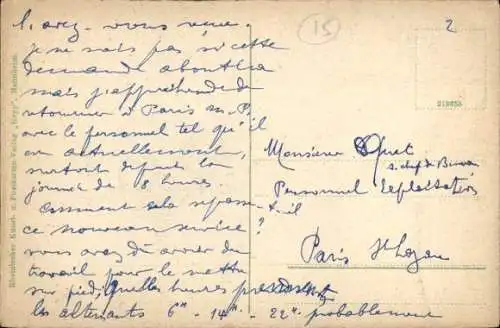 l'avez-vous vue.
je ne sais pas si cette
demande aboutira
mais j'appréhende de
retourner à Paris
avec le personnel tel qu'il
en actuellement,
surtout depuis la
journée de 8 heures.
Comment cela
ce nouveau service?
vous avez dû avoir du
travail pour le mettre
sur pied. Quelles heures
les alternants 6H - 14H - 22H probablement
15
2
213033
Monsieur
s. chef de Bureau
Personnel Exploitation
Paris St Lazare
Rheinischer Kunst- u. Postkarten-Verlag
Mannheim.